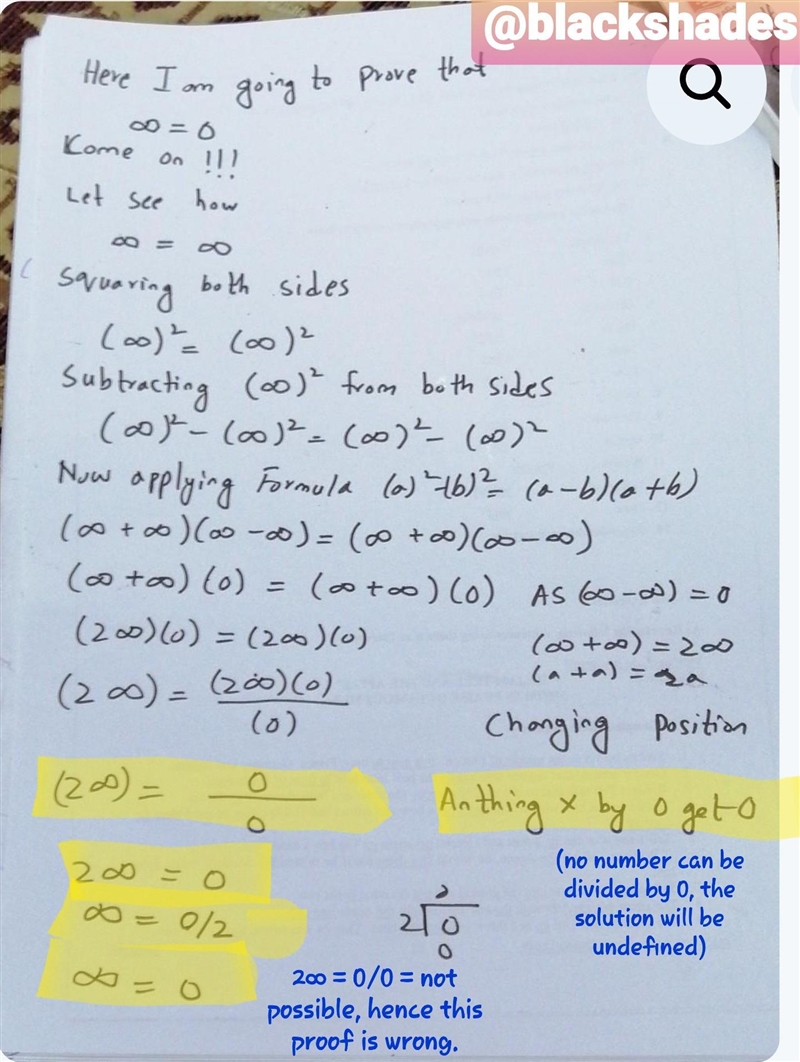 @blackshades
Here I am going to prove that
∞ = 0
Kome on !!!
Let see how
∞ = ∞
Squaring both sides
(∞)² = (∞)²
Subtracting (∞)² from both sides
(∞)² - (∞)² = (∞)² - (∞)²
Now applying Formula (a)²-(b)² = (a-b)(a+b)
(∞ + ∞)(∞ - ∞) = (∞ + ∞)(∞ - ∞)
(∞ + ∞) (0) = (∞ + ∞) (0) As (∞ - ∞) = 0
(2∞)(0) = (2∞)(0) (∞ + ∞) = 2∞
(a + a) = 2a
(2∞) = (2∞)(0) / (0) Changing Position
(2∞) = 0 / 0 Anthing × by 0 get 0
2∞ = 0
∞ = 0/2
∞ = 0
2
0
0
(no number can be
divided by 0, the
solution will be
undefined)
2∞ = 0/0 = not
possible, hence this
proof is wrong.